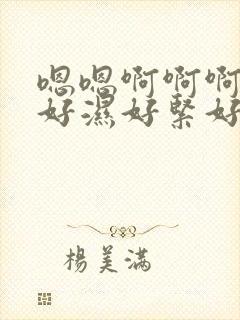 嗯嗯啊啊啊
好濕好緊好
楊美滿